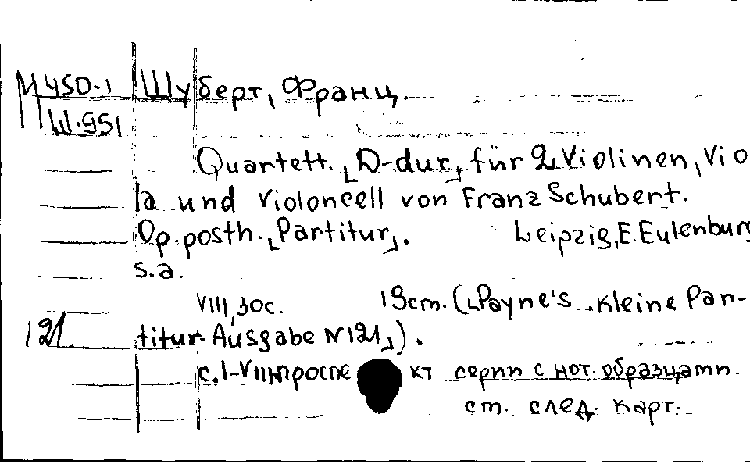 М450-1 Шуберт, Франц.
Ш.951
Quartett. [D-dur] für 2 Violinen, Vio
la und Violoncell von Franz Schubert.
Op. posth. [Partitur]. Leipzig, E. Eulenburg
s.a.
VIII, 30c. 19cm. ([Payne's kleine Par-
121 titur-Ausgabe N 121]).
с. I-VIII проспе кт серии с нот. образцами.
см. след. карт.